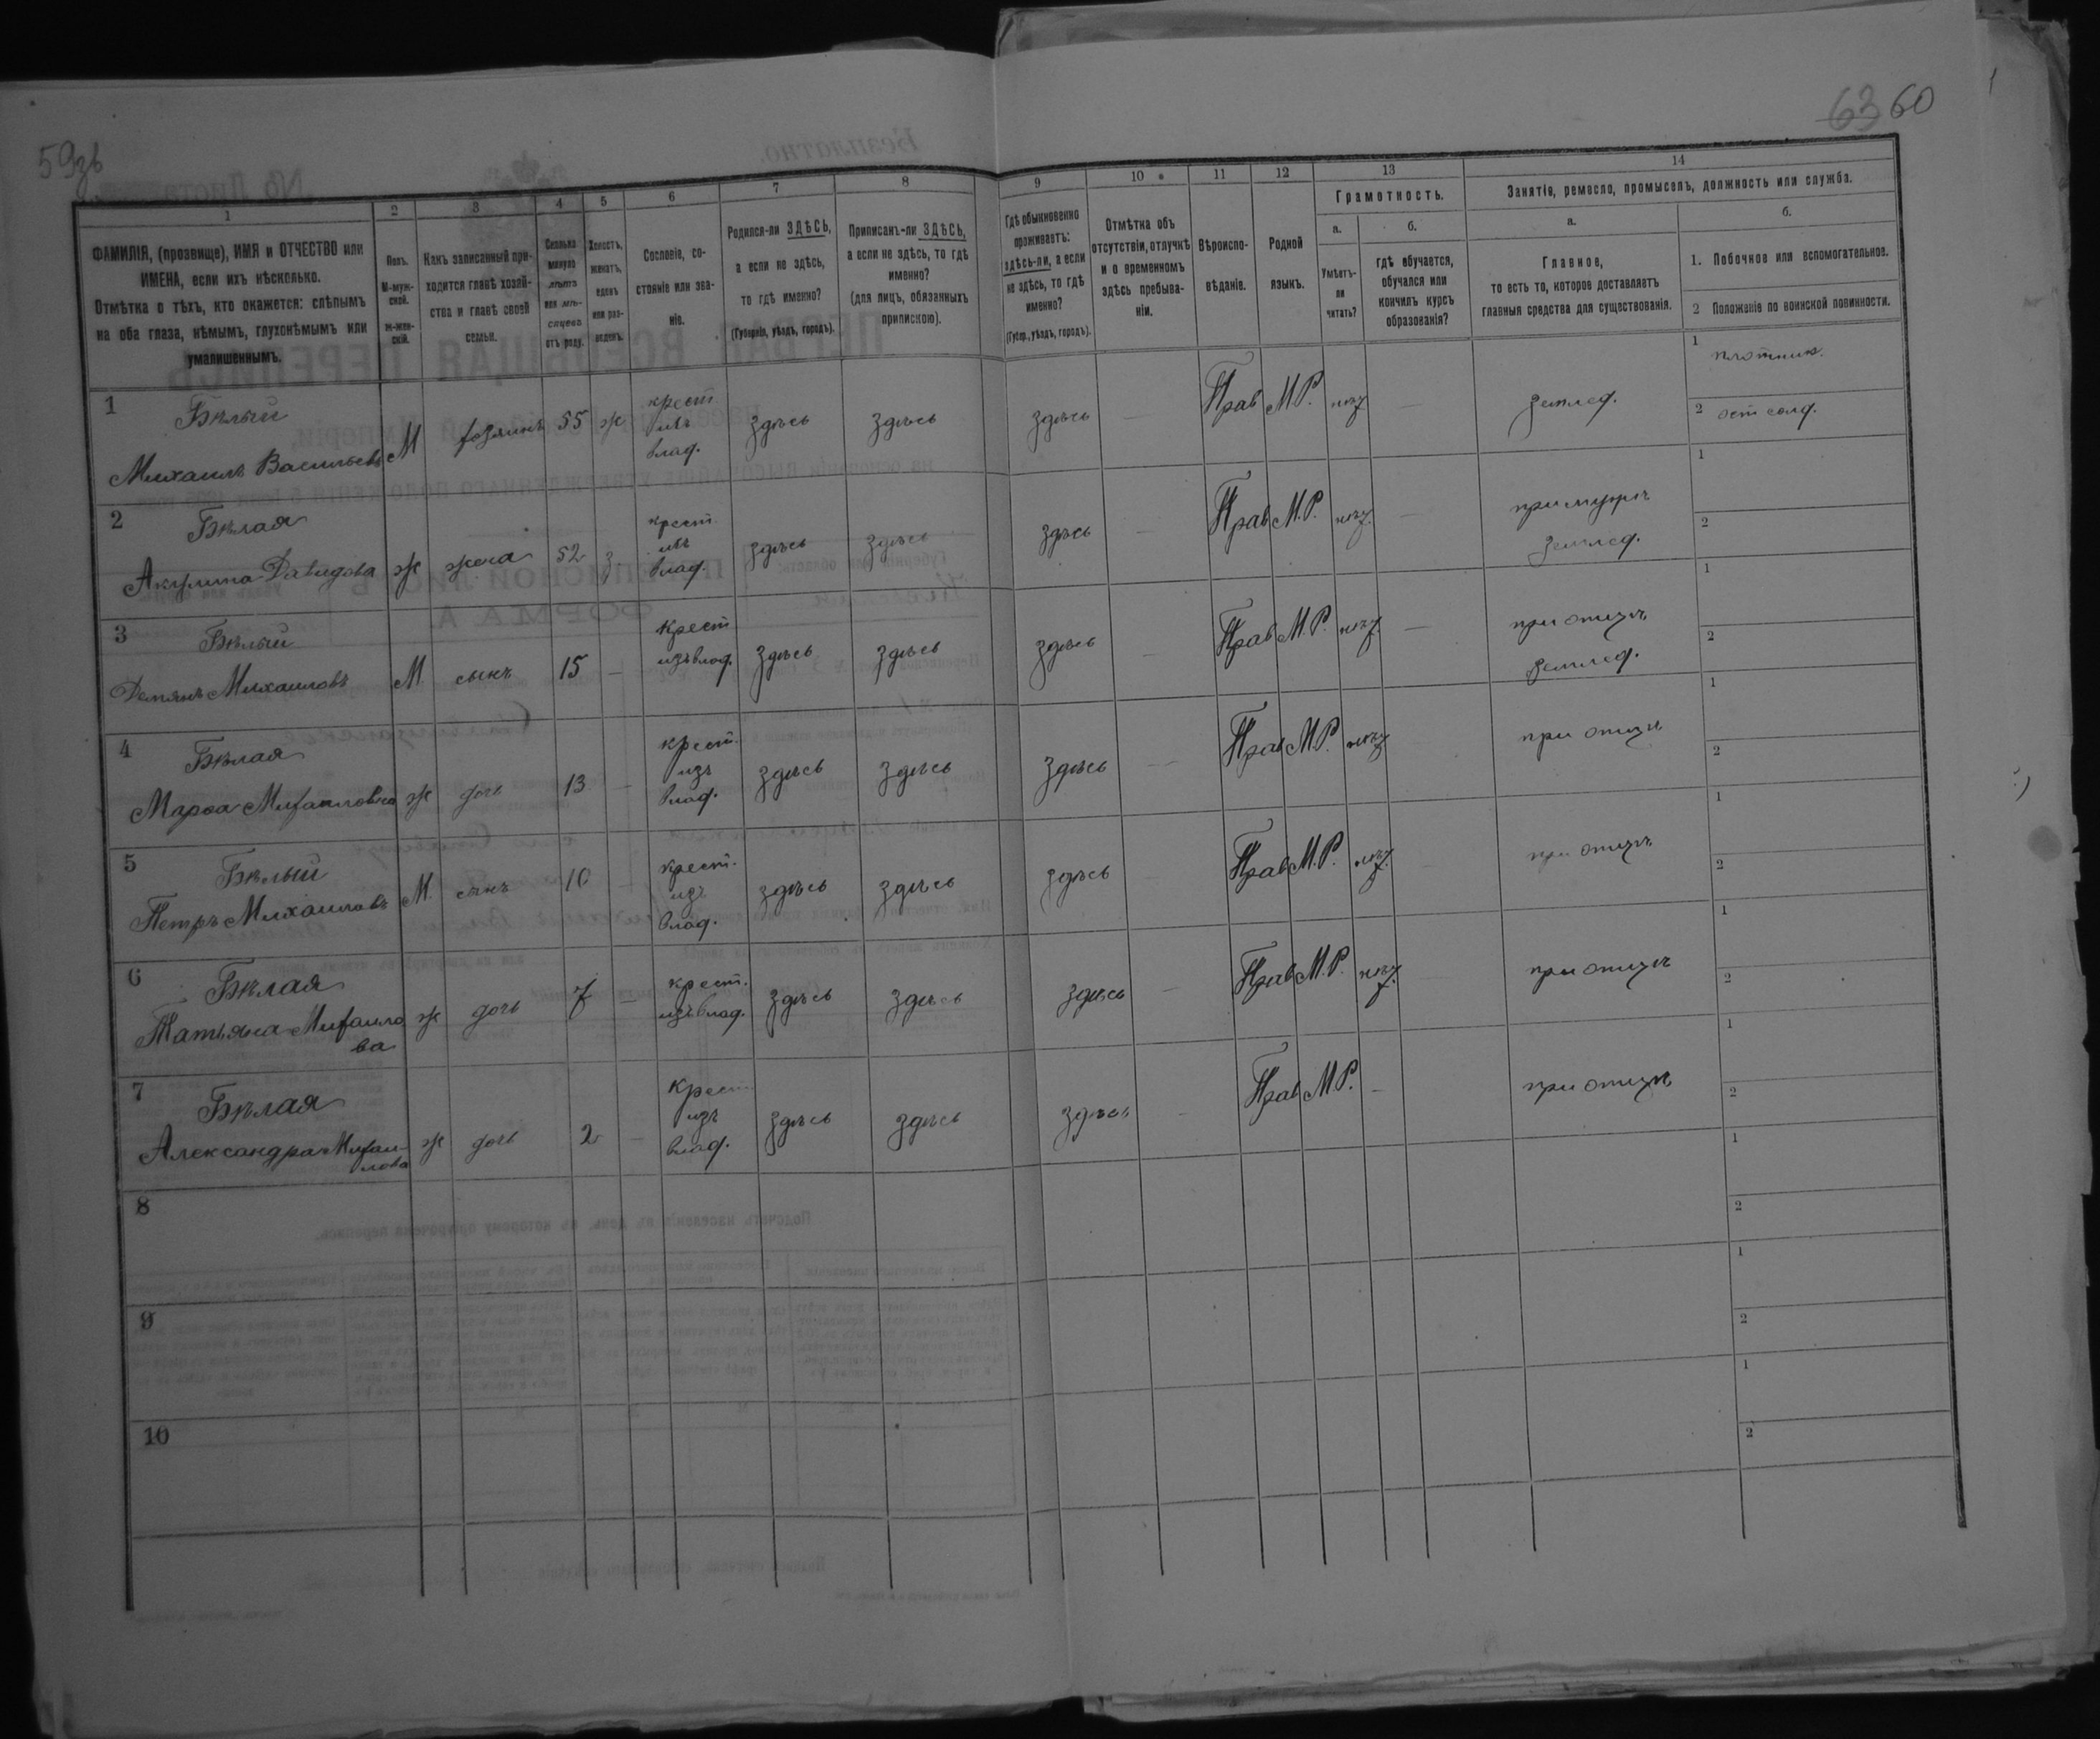 59зв
63 60
1
ФАМИЛІЯ, (прозвище), ИМЯ и ОТЧЕСТВО или
ИМЕНА, если ихъ нѣсколько.
Отмѣтка о тѣхъ, кто окажется: слѣпымъ
на оба глаза, нѣмымъ, глухонѣмымъ или
умалишеннымъ.
2
Полъ.
М-муж-
ской.
ж-жен-
скій.
3
Какъ записанный при-
ходится главѣ хозяй-
ства и главѣ своей
семьи.
4
Сколько
минуло
лѣтъ
или мѣ-
сяцевъ
отъ роду.
5
Холостъ,
женатъ,
вдовъ
или раз-
веденъ.
6
Сословіе, со-
стояніе или зва-
ніе.
7
Родился-ли ЗДѢСЬ,
а если не здѣсь,
то гдѣ именно?
(Губернія, уѣздъ, городъ).
8
Приписанъ-ли ЗДѢСЬ,
а если не здѣсь, то гдѣ
именно?
(для лицъ, обязанныхъ
припискою).
9
Гдѣ обыкновенно
проживаетъ:
здѣсь-ли, а если
не здѣсь, то гдѣ
именно?
(Губер., уѣздъ, городъ).
10
Отмѣтка объ
отсутствіи, отлучкѣ
и о временномъ
здѣсь пребыва-
ніи.
11
Вѣроиспо-
вѣданіе.
12
Родной
языкъ.
13
Грамотность.
а.
Умѣетъ-
ли
читать?
б.
гдѣ обучается,
обучался или
кончилъ курсъ
образованія?
14
Занятіе, ремесло, промыселъ, должность или служба.
а.
Главное,
то есть то, которое доставляетъ
главныя средства для существованія.
б.
1. Побочное или вспомогательное.
2 Положеніе по воинской повинности.
1 Бѣлый
Михаилъ Васильевъ М хозяинъ 55 ж крест изъ влад. здѣсь здѣсь здѣсь — Прав М.Р. нѣт — землед. 1 плотник. 2 отт солд.
2 Бѣлая
Акулина Давидова ж жена 52 з крест. изъ влад. здѣсь здѣсь здѣсь — Прав М.Р. нѣт. — при мужѣ землед. 1 2
3 Бѣлый
Демянъ Михаиловъ М. сынъ 15 — крест изъ влад. здѣсь здѣсь здѣсь — Прав М.Р. нѣт. — при отцѣ землед. 1 2
4 Бѣлая
Марфа Михаилова ж дочь 13 — крест. изъ влад. здѣсь здѣсь здѣсь — Прав М.Р. нѣт при отцѣ 1 2
5 Бѣлый
Петръ Михаиловъ М. сынъ 10 — крест. изъ влад. здѣсь здѣсь здѣсь Прав М.Р. нѣт. при отцѣ 1 2
6 Бѣлая
Татьяна Михаило
ва ж дочь 7 — крест. изъ влад. здѣсь здѣсь здѣсь — Прав М.Р. нѣт. при отцѣ 1 2
7 Бѣлая
Александра Михаи-
лова ж дочь 2 — крест изъ влад. здѣсь здѣсь здѣсь — Прав М.Р. — при отцѣ 1 2
8 1 2
9 1 2
10 1 2